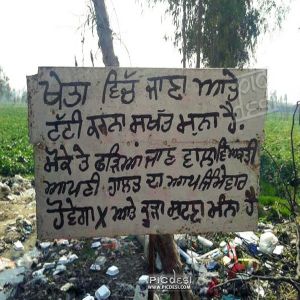 ਖੇਤਾ ਵਿੱਚ ਜਾਣ ਅਤੇ
ਟੱਟੀ ਕਰਨਾ ਸਖਤ ਮਨਾ ਹੈ.
ਮੌਕੇ ਤੇ ਫੜਿਆ ਜਾਣ ਵਾਲਾ ਵਿਅਕਤੀ
ਆਪਣੀ ਹਾਲਤ ਦਾ ਆਪ ਜਿੰਮੇਵਾਰ
ਹੋਵੇਗਾ X ਅਤੇ ਕੂੜਾ ਸੁਟਣਾ ਮੰਨਾ ਹੈ
PICDESI
WWW.PICDESI.COM